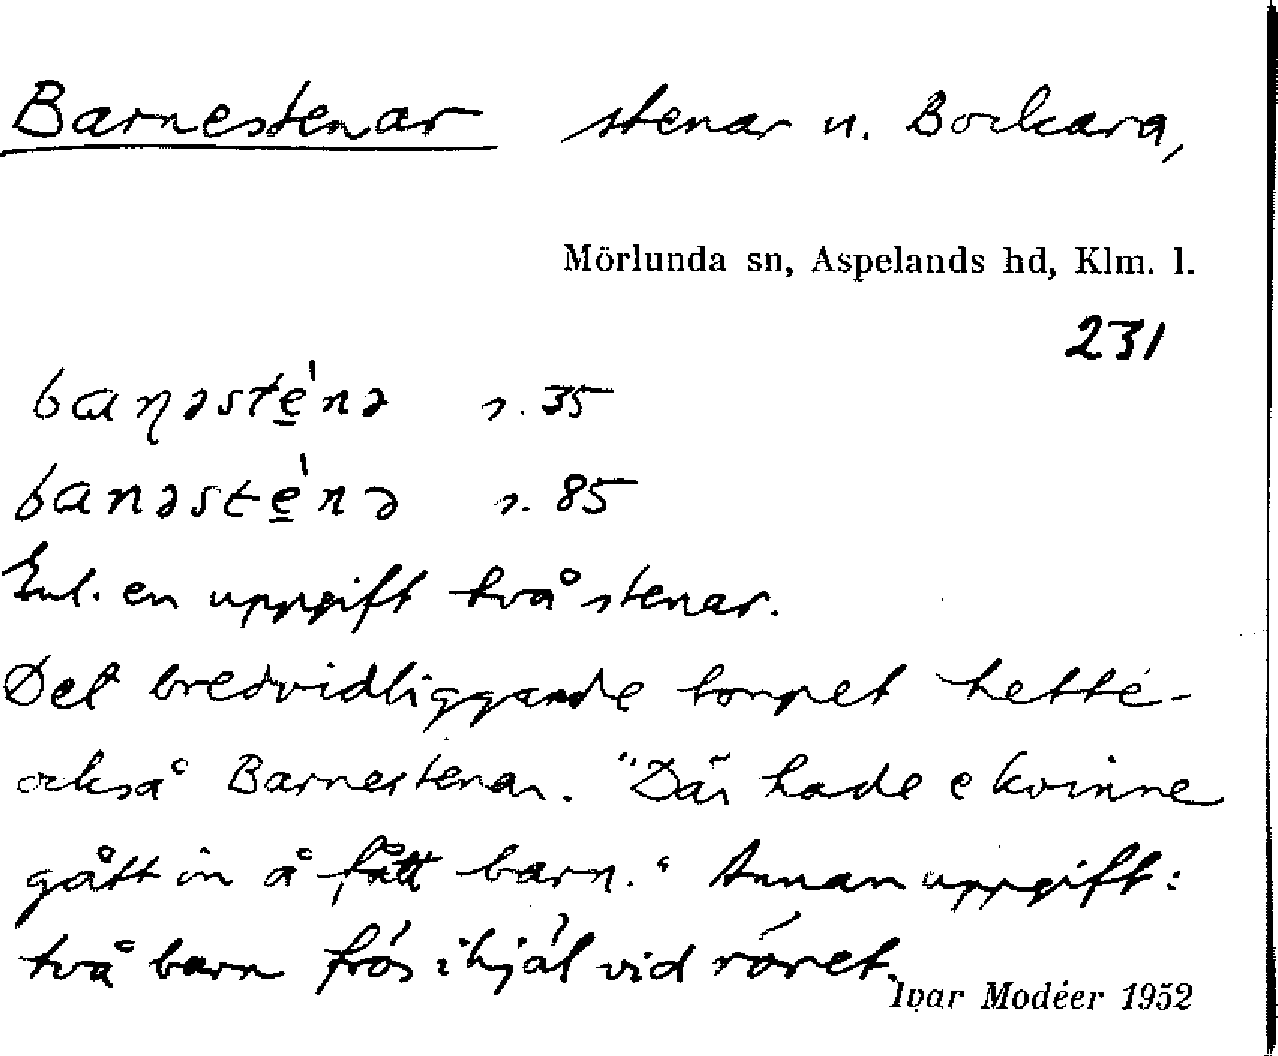 Barnestenar stenar n. Bockara,
Mörlunda sn, Aspelands hd, Klm. l.
231
baṇəste̠ ́nə s. 35
banəste̠ ́nə s. 85
Enl. en uppgift två stenar.
Det bredvidliggande torpet hette
också Barnestenar. "Där hade e kvinne
gått in å fått barn." Annan uppgift:
två barn frös ihjäl vid röret.
Ivar Modéer 1952